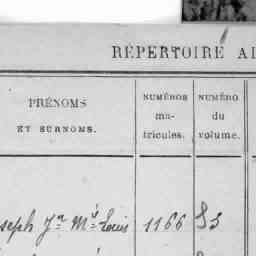 RÉPERTOIRE AL
PRÉNOMS
ET SURNOMS.
NUMÉROS
ma-
tricules.
NUMÉRO
du
volume.
seph Jn Mie Louis 1166